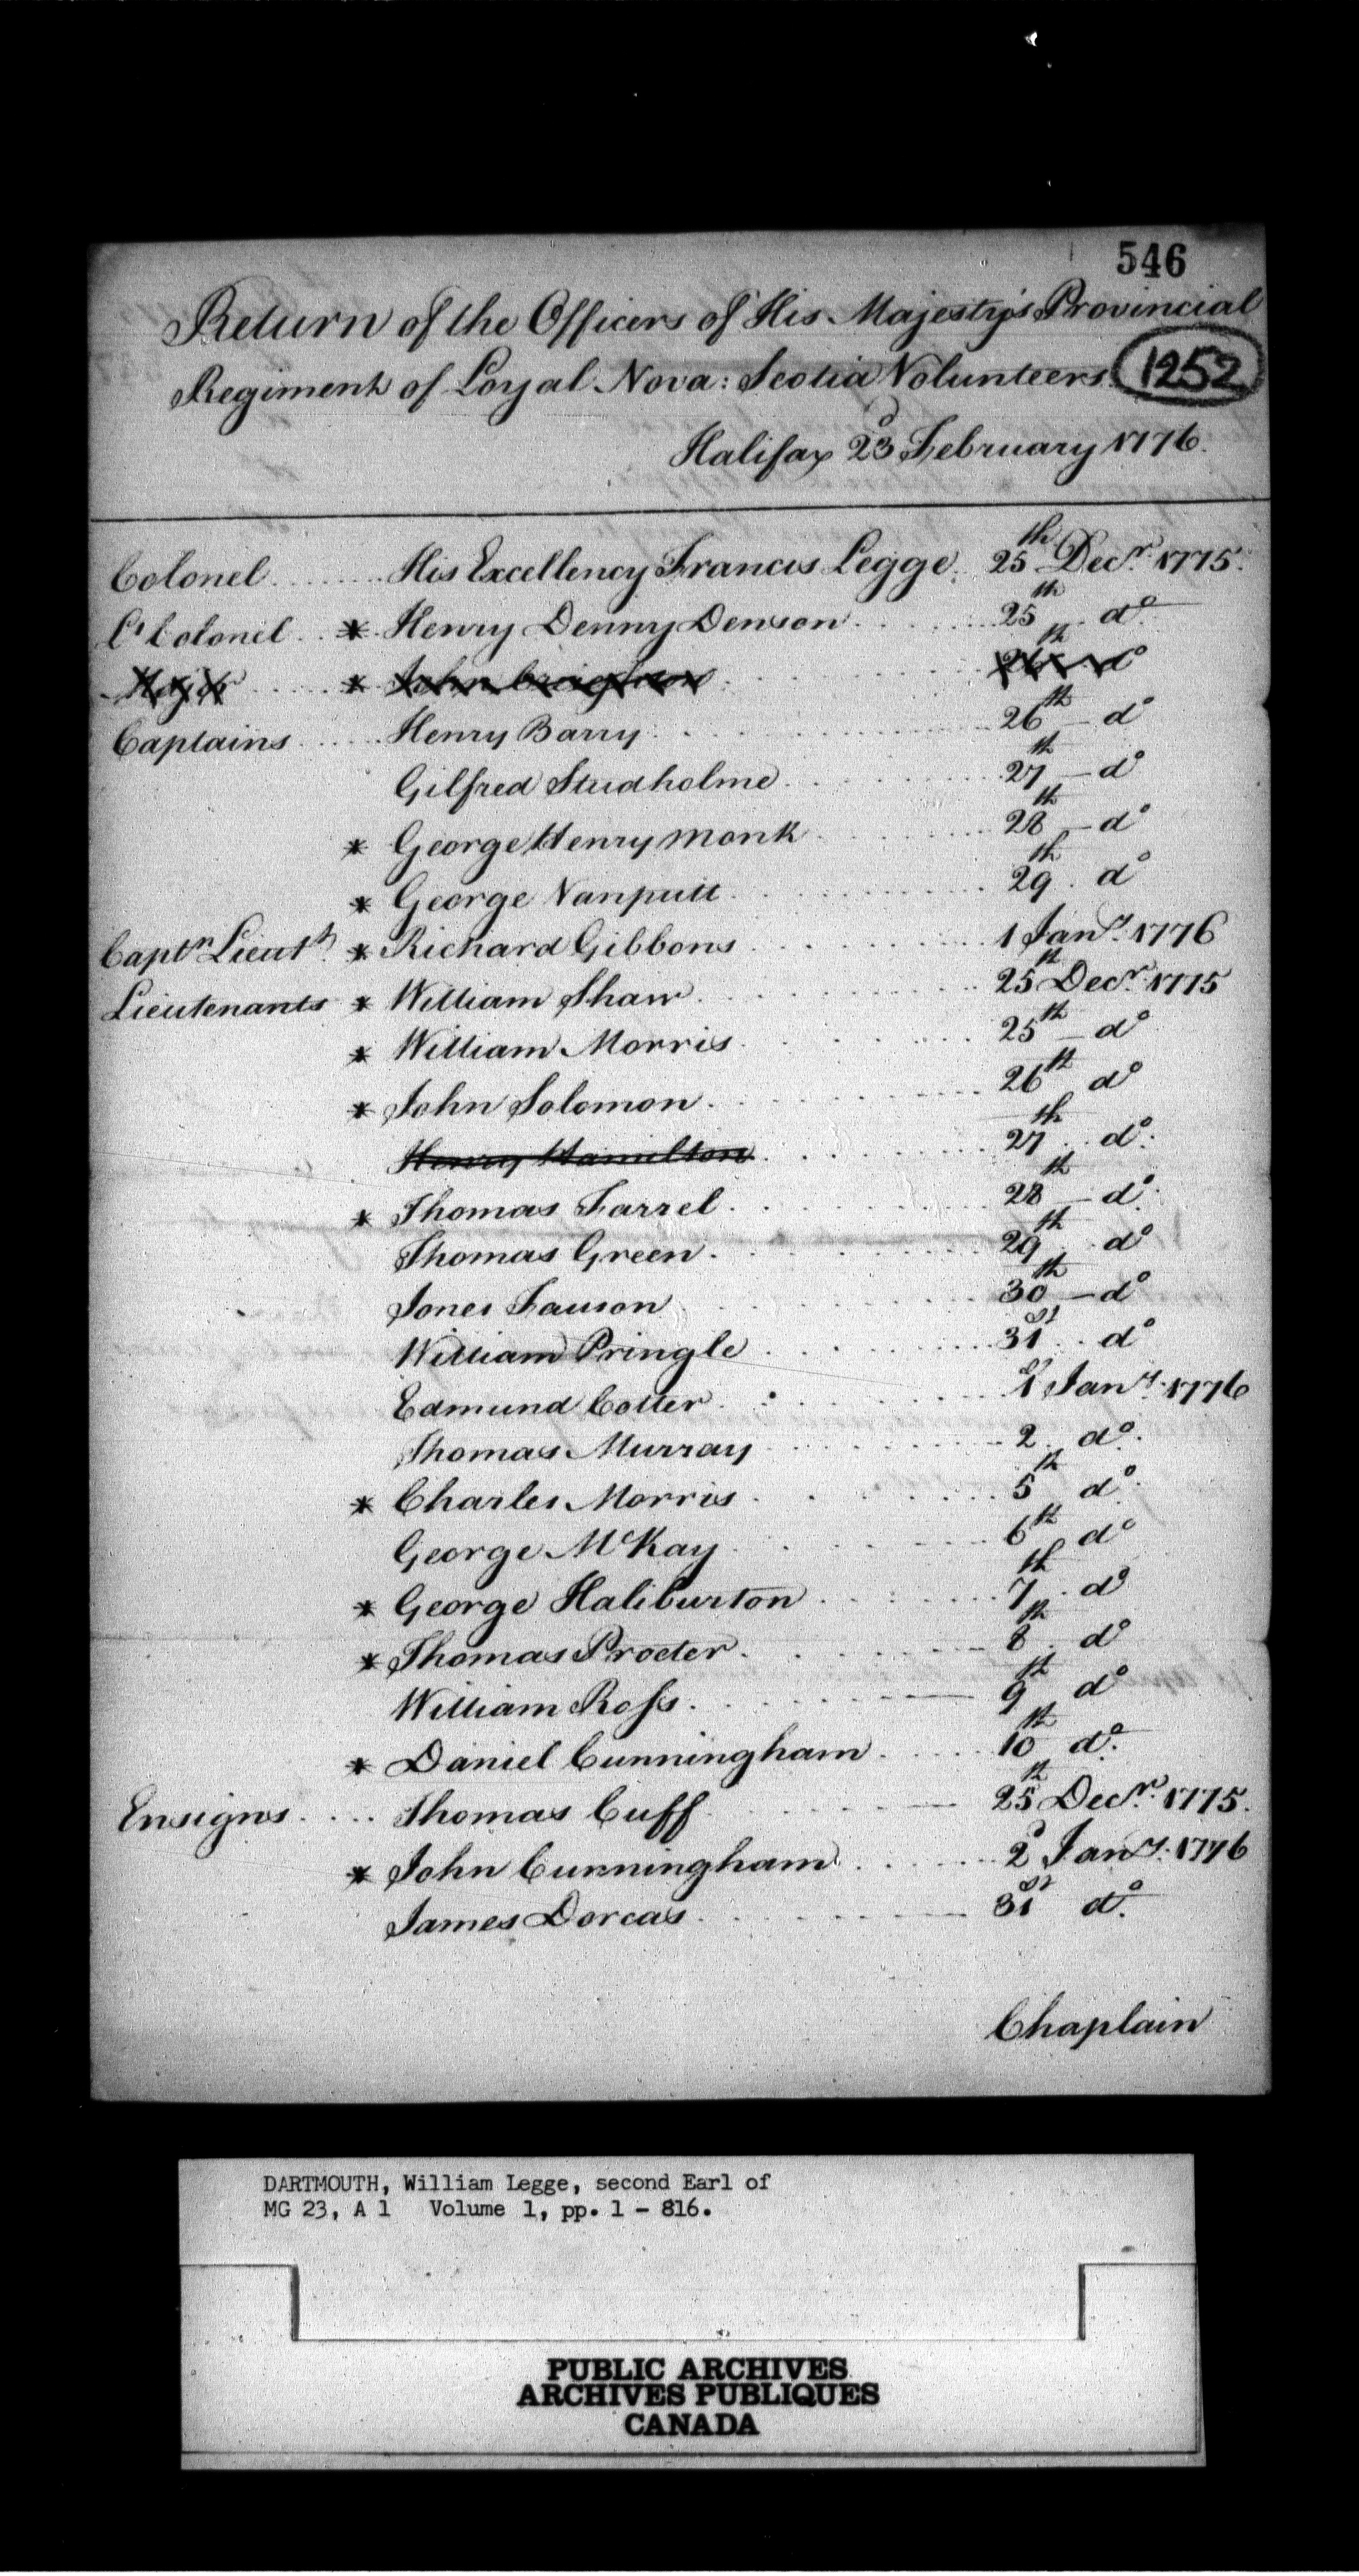 546
Return of the Officers of His Majesty's Provincial
Regiment of Loyal Nova: Scotia Volunteers. 1252
Halifax 23d February 1776.
Colonel ........ His Excellency Francis Legge. 25th Decr. 1775.
Lt Colonel .. * Henry Denny Denson ........ 25th .. do.
Major ...... * John Creighton ........ 26th do
Captains ..... Henry Barry ........ 26th — do
Gilfred Studholme ........ 27th — do
* George Henry Monk ........ 28th — do
* George Vanputt ........ 29th . do
Captn Lieutt * Richard Gibbons ........ 1 Jany. 1776
Lieutenants * William Shaw ........ 25th Decr. 1775
* William Morris ........ 25th — do
* John Solomon ........ 26th do
Henry Hamilton ........ 27th .. do.
* Thomas Farrel ........ 28th — do.
Thomas Green ........ 29th .. do
Jones Fawson ........ 30th — do
William Pringle ........ 31st .. do
Edmund Cotter ........ 1st Jany. 1776
Thomas Murray ........ 2 .. do.
* Charles Morris ........ 5th do.
George McKay ........ 6th do
* George Haliburton ........ 7th . do
* Thomas Procter ........ 8th . do
William Ross ........ 9th do
* Daniel Cunningham ........ 10th do.
Ensigns .... Thomas Cuff ........ 25th Decr. 1775.
* John Cunningham ........ 2d Jany. 1776
James Dorcas ........ 31st do.
Chaplain
DARTMOUTH, William Legge, second Earl of
MG 23, A 1 Volume 1, pp. 1 - 816.
PUBLIC ARCHIVES
ARCHIVES PUBLIQUES
CANADA